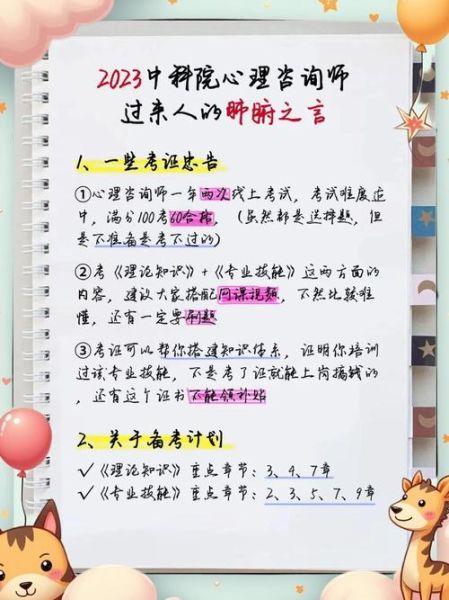 2023中科院心理咨询师
过来人的肺腑之言
1、一些考证忠告
①心理咨询师一年两次线上考试，考试难度适
中，满分100考60合格，（虽然都是选择题，但
是不准备是考不过的）
②考《理论知识》+《专业技能》这两方面的
内容，建议大家搭配网课视频，不然比较难
懂，还有一定要刷题
③考证可以帮你搭建知识体系，证明你培训
过该专业技能，不是考了证就能上岗搞钱的
，还有这个证书不能领补贴
2、关于备考计划
✓《理论知识》重点章节：3、4、7章
✓《专业技能》重点章节：2、3、5、7、9章